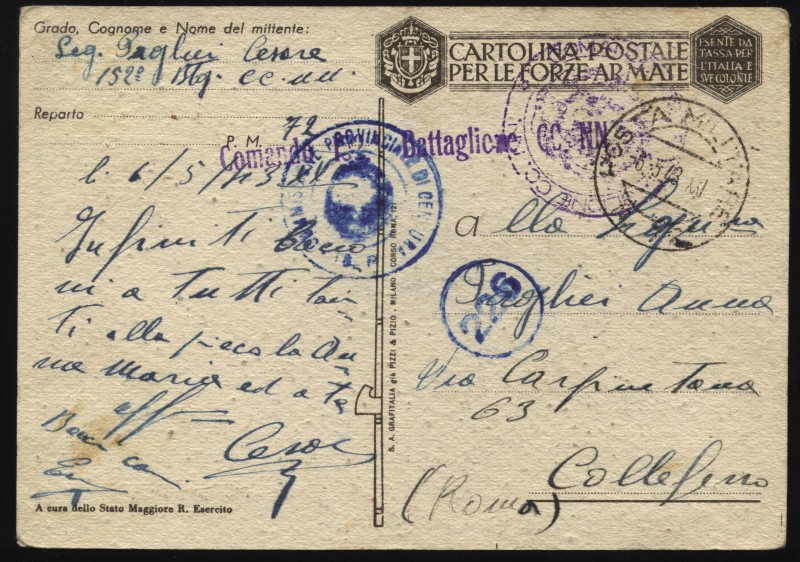 Grado, Cognome e Nome del mittente:
Cesare
152° Btg. CC. NN.
Reparto
P. M. 72
li 6/5/43 XXI
Infiniti Bacio
ni a tutti tan
ti alla piccola An
na Maria ed a te
aff
Cesare
Baci
A cura dello Stato Maggiore R. Esercito
CARTOLINA POSTALE
PER LE FORZE ARMATE
ESENTE DA
TASSA PER
L'ITALIA E
SUE COLONIE
Comando Battaglione CC. NN.
PROVINCIALE DI CENSURA
POSTA MILITARE
226
S. A. GRAFITALIA già PIZZI & PIZIO - MILANO
alla Signora
Anna
Via Carpinetana
63
Colleferro
(Roma)